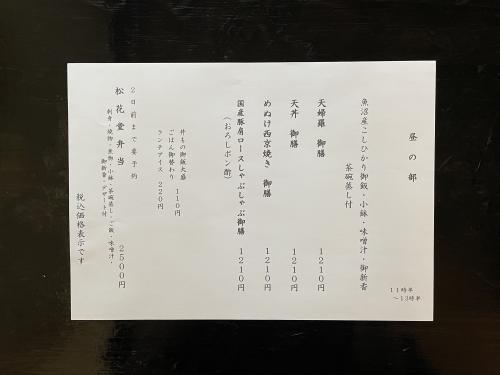 昼の部
11時半
～13時半
魚沼産こしひかり御飯・小鉢・味噌汁・御新香
茶碗蒸し付
天婦羅 御膳 1210円
天丼 御膳 1210円
めぬけ西京焼き 御膳 1210円
国産豚肩ロースしゃぶしゃぶ御膳 1210円
(おろしポン酢)
丼もの御飯大盛
ごはん御替わり 110円
ランチアイス 220円
2日前まで要予約
松花堂弁当 2500円
刺身・焼物・煮物・小鉢・茶碗蒸し・ご飯・味噌汁・
御新香・デザート付
税込価格表示です